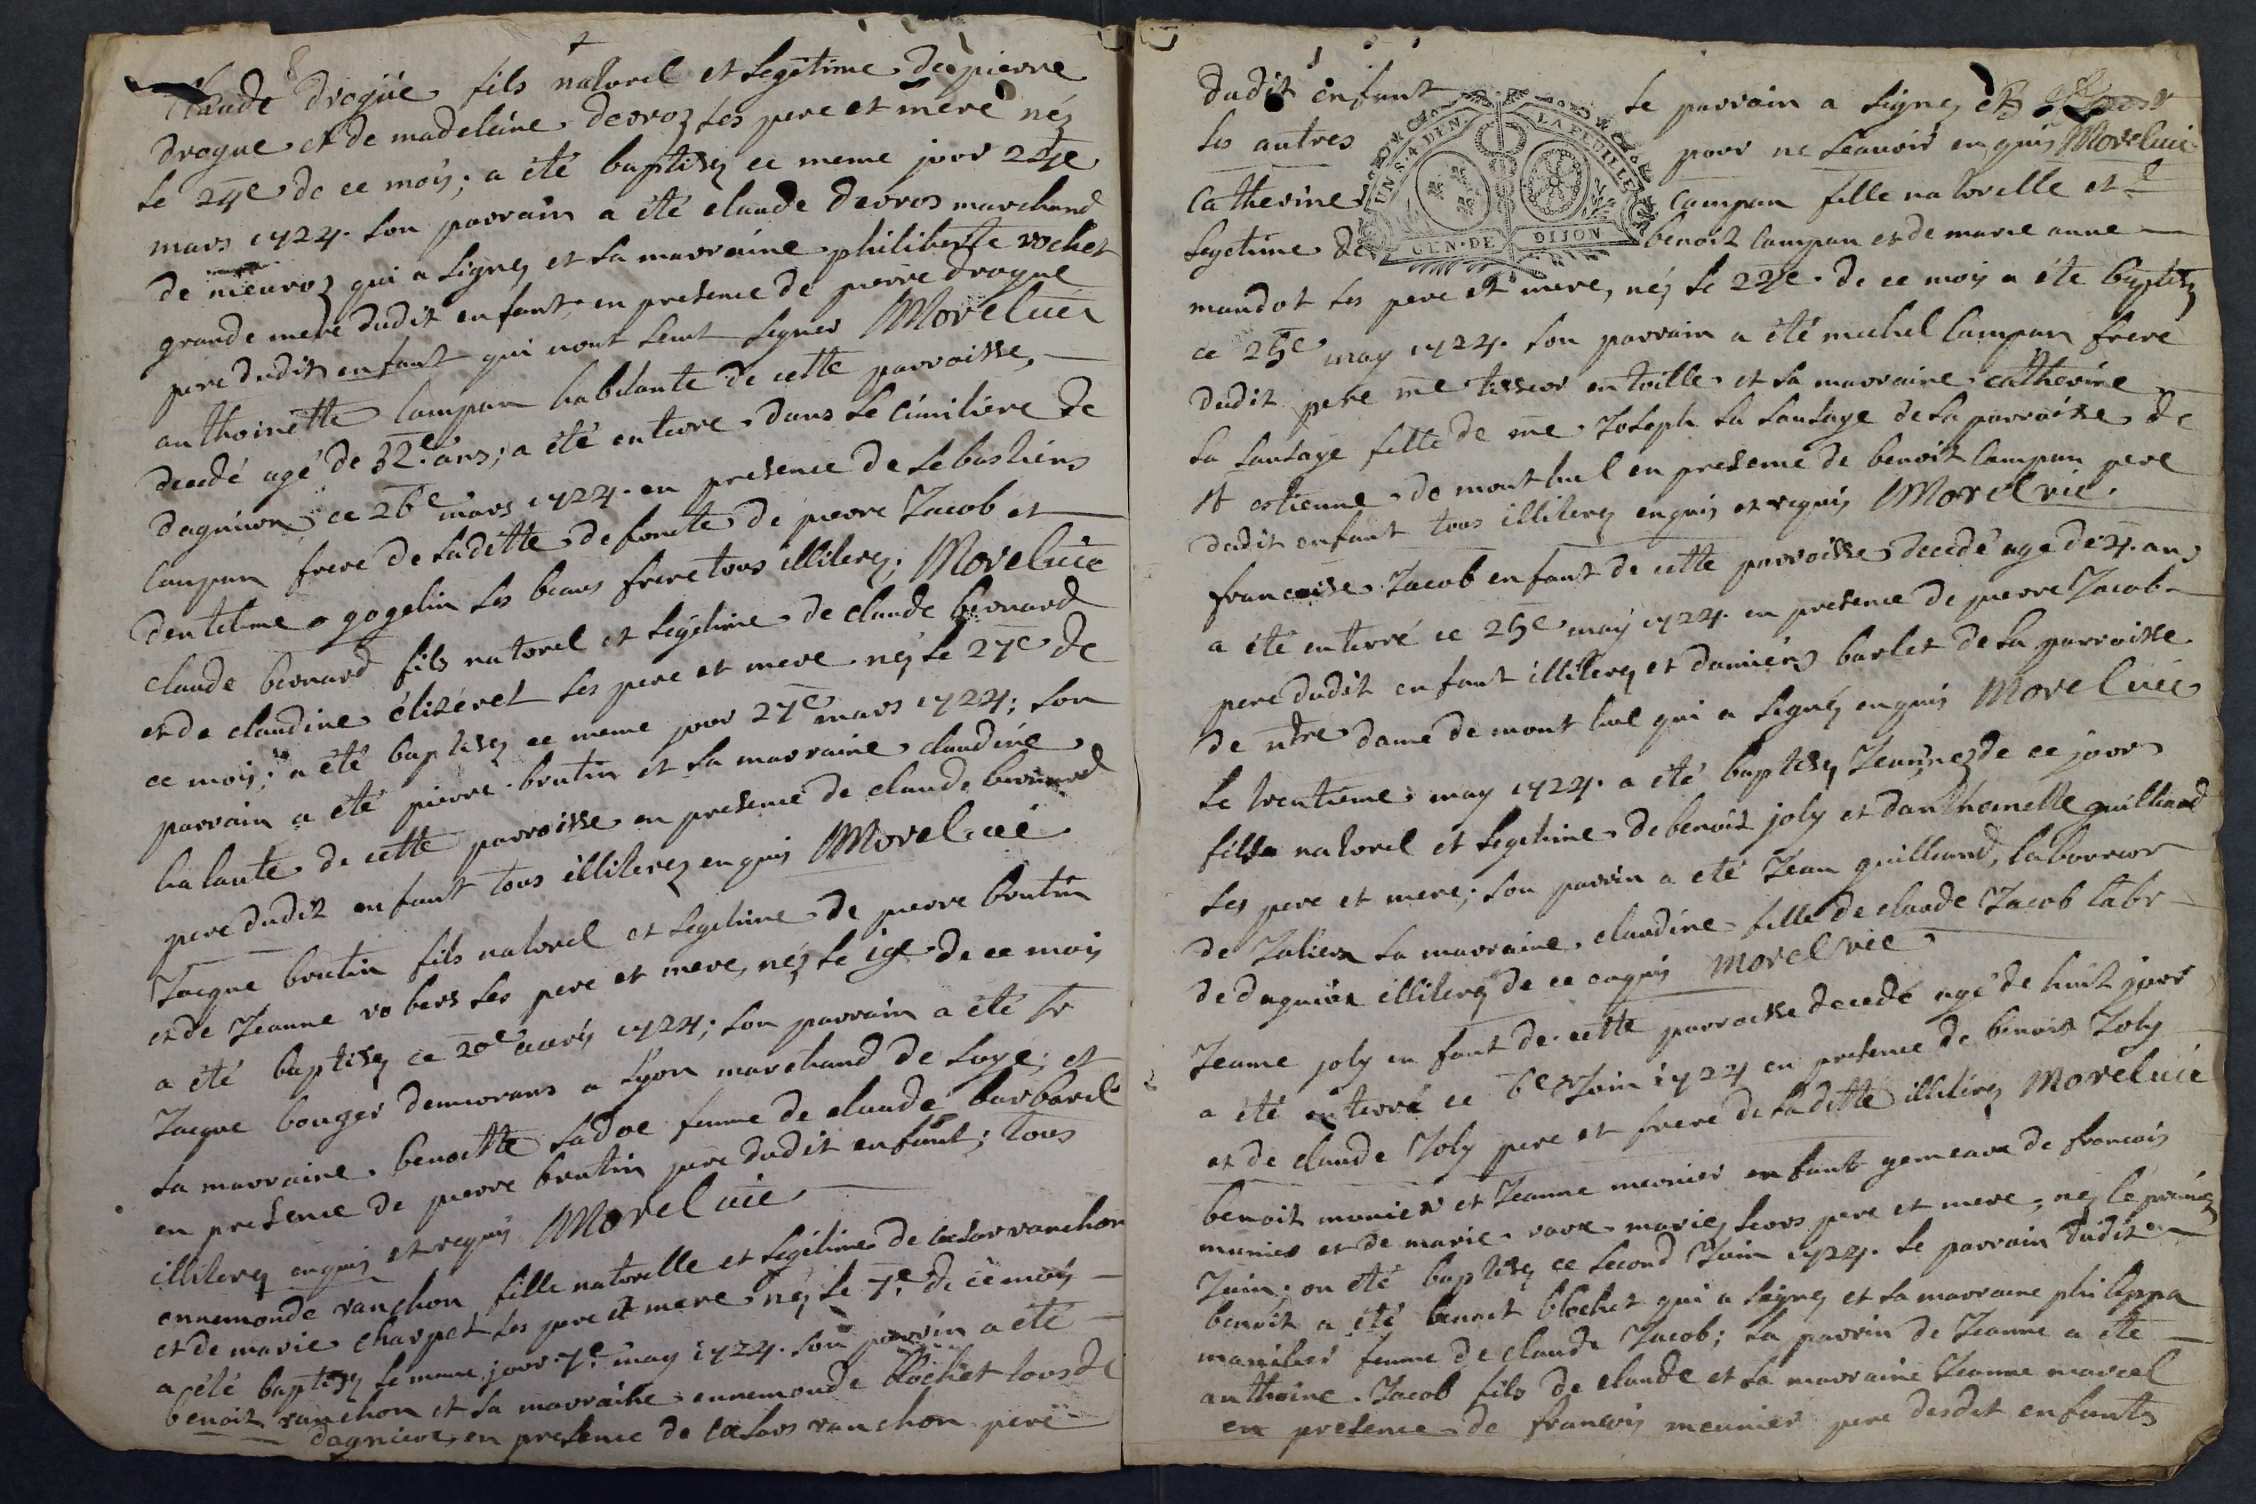 Claude drogue fils naturel et legitime de pierre
drogue et de madeleine devroz ses pere et mere néz
le 24e de ce mois; a été baptisez ce meme jour 24e
mars 1724. son parrain a été claude devros marchand
de nievroz qui a signez et sa marraine philiberte rochet
grande mere dudit enfant, en presence de pierre drogue
pere dudit enfant qui nont seut signer Morel vic
anthoinette campan habitante de cette parroisse,
decedé agé de 32e ans; a été enterre dans le cimitiere de
dagnieu ce 26e mars 1724. en presence de sebastiens
campan frere de laditte defoncte de pierre Jacob et
dentelme gogelin ses beaux frere tous illiterez; Morel vic
claude bernard fils naturel et legitime de claude bernard
et de claudine elizeret ses pere et mere néz le 27e de
ce mois; a été baptisez ce meme jour 27e mars 1724; son
parrain a été pierre brutin et sa marraine claudine
balante de cette parroisse en presence de claude bernard
pere dudit enfant tous illiterez enquis Morel vic
Jacque brutin fils naturel et legitime de pierre brutin
et de Jeanne robers ses pere et mere, néz le 19e de ce mois
a été baptisez ce 20e avril 1724; son parrain a été sr
Jacque bouger demeurans a Lyon marchand de soye; et
sa marraine benoitte ladoe femme de claude barbaret
en presence de pierre brutin pere dudit enfant; tous
illiterez enquis et requis Morel vic
ennemonde ranchon fille naturelle et legitime de cesar ranchon
et de marie charpet ses pere et mere néz le 7e de ce mois
a été baptisez le meme jour 7e may 1724. son parrin a été
benoit ranchon et sa marraine ennemonde blochet tous de
dagnieu, en presence de cesars ranchon pere
dudit enfant le parrain a signez et
les autres pour ne scavoir enquis Morel vic
UN S. 4 DEN. LA FEUILLE
GEN. DE DIJON
Catherine campan fille naturelle et
legetime de benoit campan et de marie anne
mandot ses pere et mere, néz le 24e de ce mois a été baptisez
ce 25e may 1724. son parrain a été michel campan frere
dudit pere me tisseur en toille et sa marraine catherine
la sausaye fille de me Joseph la sausaye de la parroisse de
st estienne de montluel en presence de benoit campan pere
dudit enfant tous illiterez enquis et requis Morel vic.
francoise Jacob enfant de cette parroisse decedé agé de 4 ans
a été enterré ce 25e may 1724. en presence de pierre Jacob
pere dudit enfant illiterez et damiens barlet de la parroisse
de ntre dame de montluel qui a signéz enquis Morel vic
le trentieme may 1724. a été baptisez Jeanne née de ce jour
fille naturel et legitime de benoit joly et danthoinette guilland
ses pere et mere; son parrin a été Jean guilland, laboureur
de Jalieu sa marraine claudine fille de claude Jacob labr
de dagnieu illiterez de ce enquis Morel vic
Jeanne joly enfant de cette parroisse decedé agé de huit jour
a été enterré ce 6e Juin 1724 en presence de benoit Joly
et de claude Joly pere et frere de laditte illiterez Morel vic
benoit munier et Jeanne meunier enfants gemeaux de francois
munier et de marie rave mariez leurs pere et mere, nez le premier
Juin; on été baptisez ce second Juin 1724. le parrain dudit
benoit a été benoit blochet qui a signez et sa marraine philippa
manilier femme de claude Jacob; la parrin de Jeanne a été
anthoine Jacob fils de claude et sa marraine Jeanne marcel
en presence de francois meunier pere desdit enfants